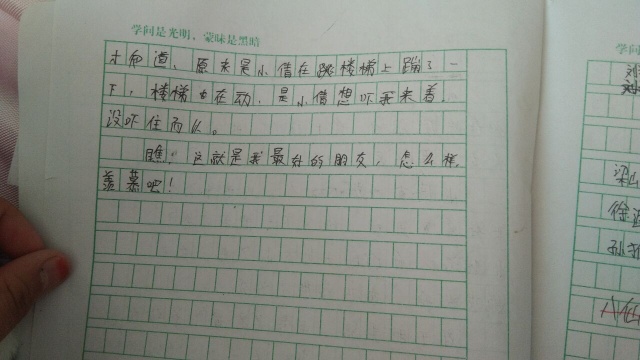 学问是光明,蒙昧是黑暗
才知道、原来是小倩在跳楼梯上蹦了一
下,楼梯也在动,是小倩想吓我来着,
没吓住而么。
瞧!这就是我最好的朋友,怎么样,
羡慕吧!
学问
刘
梁
徐
孙